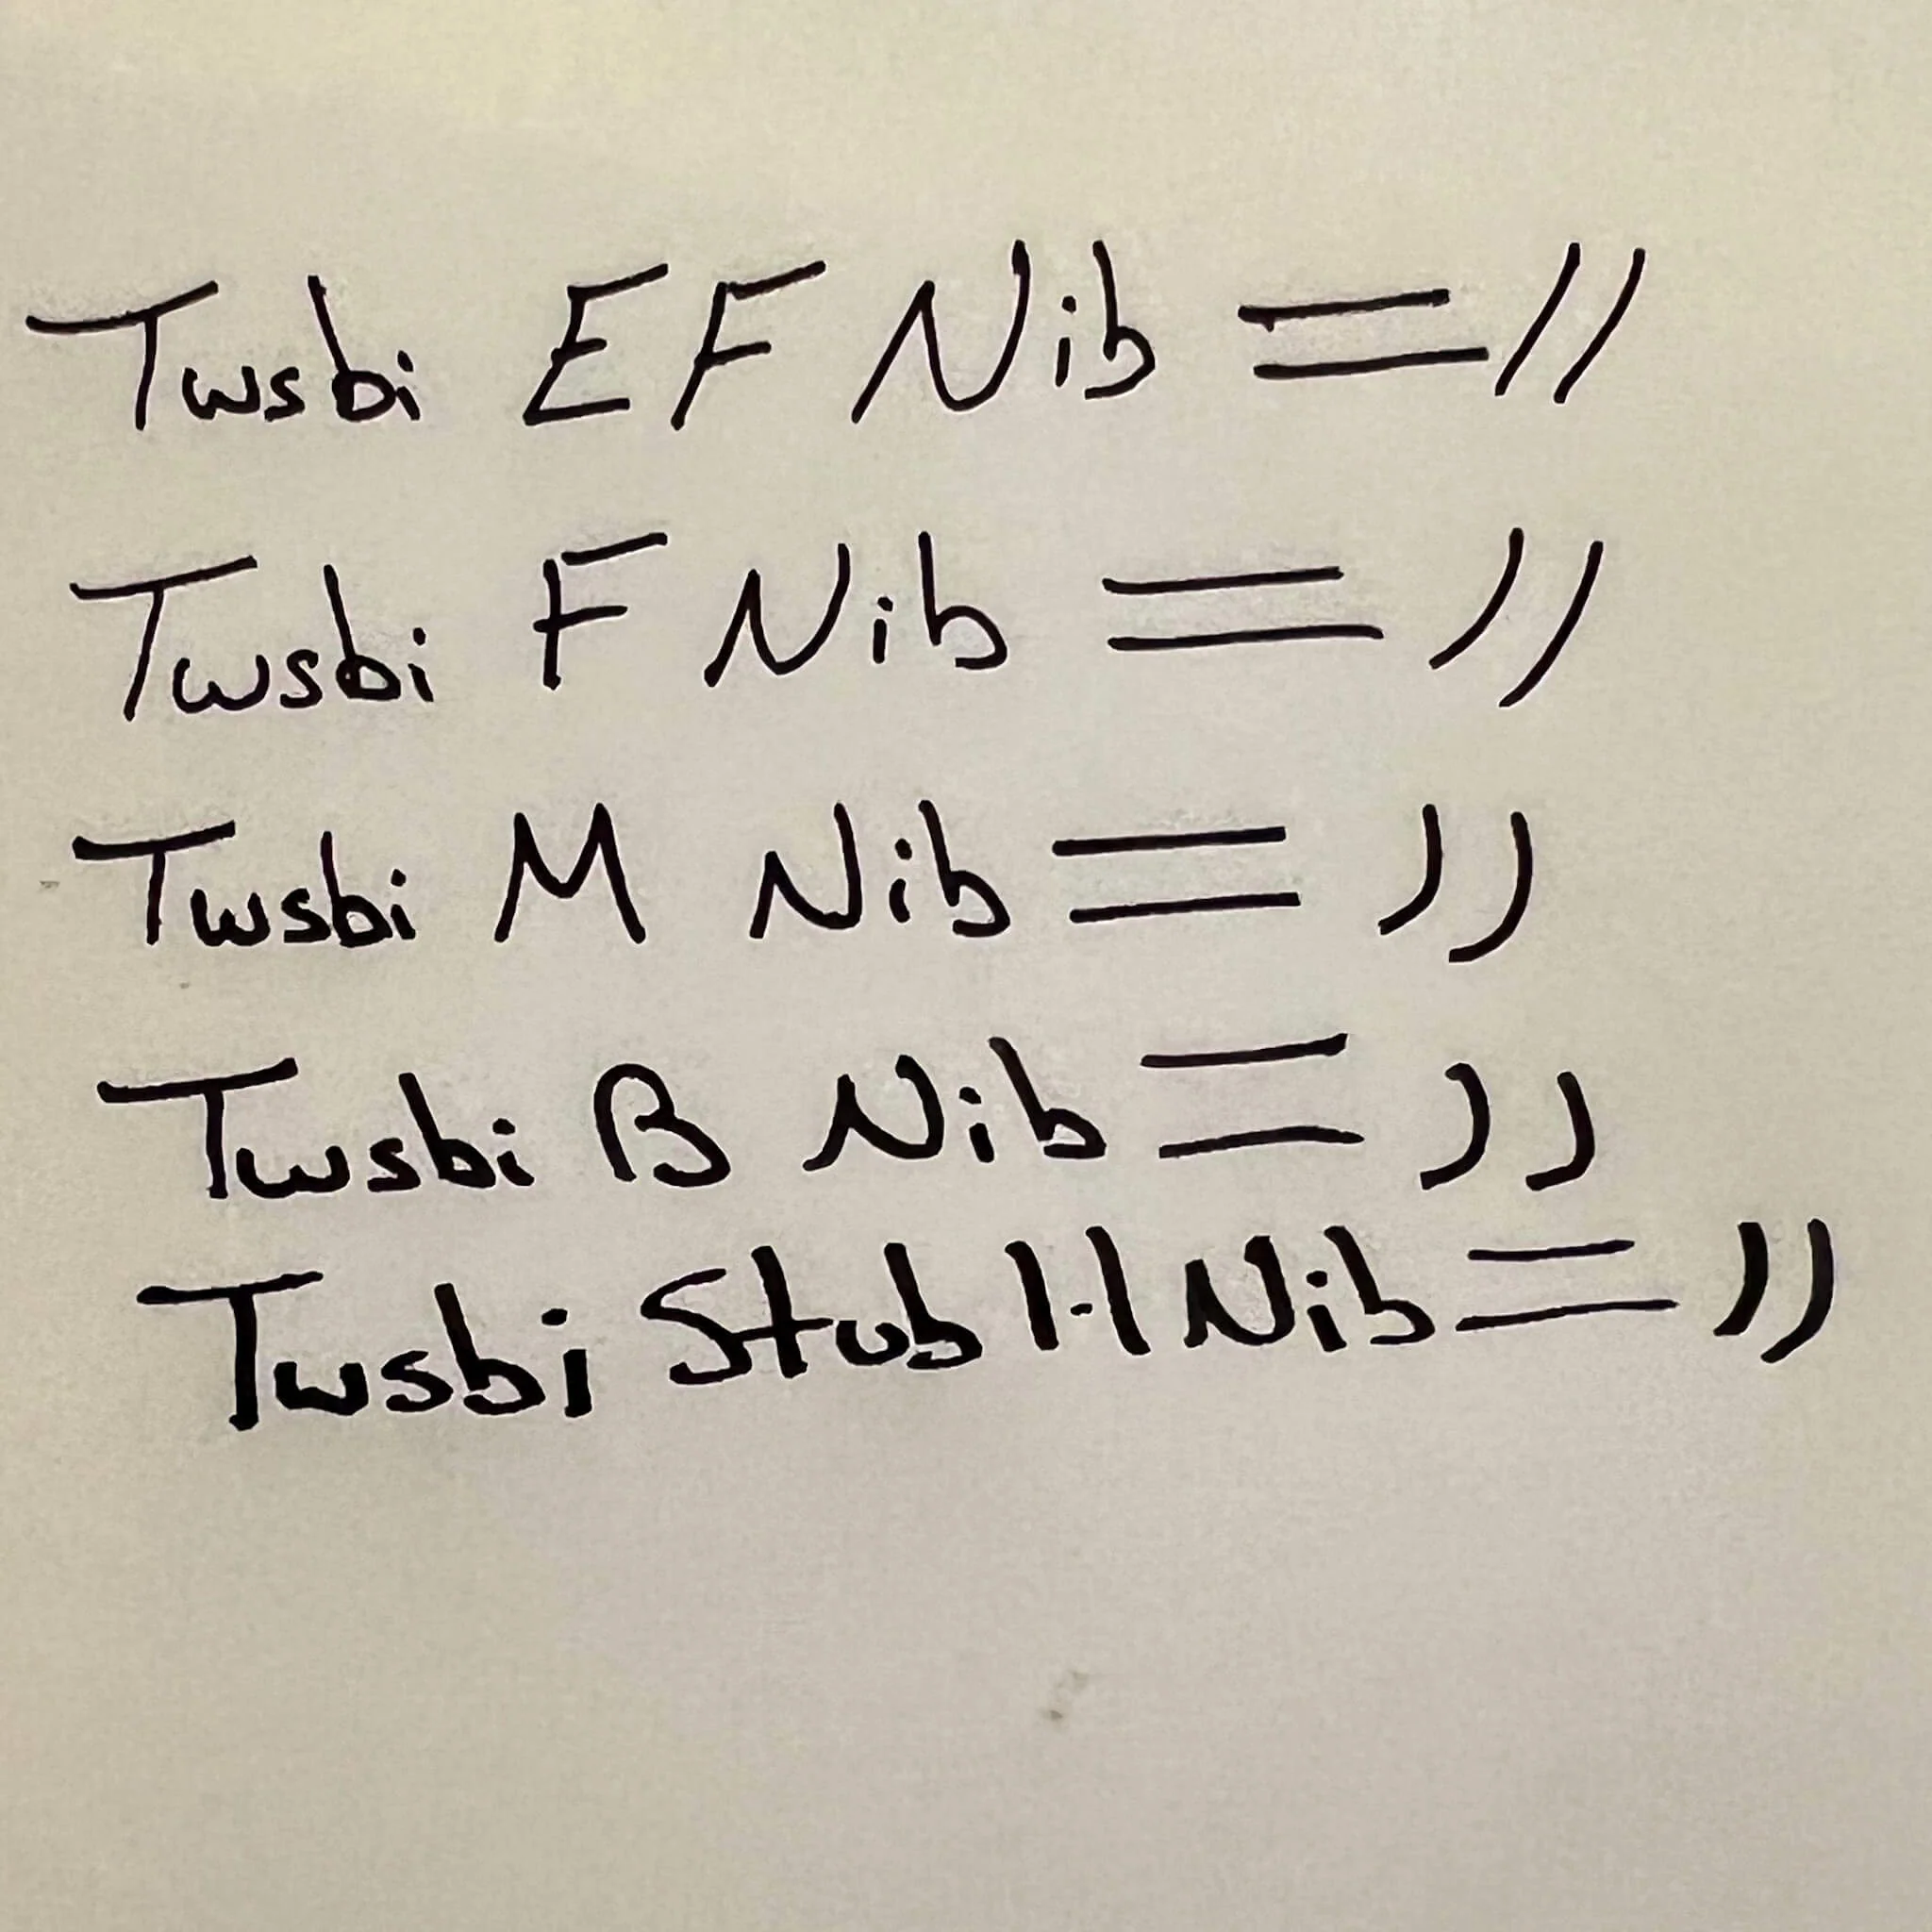 Twsbi EF Nib = //
Twsbi F Nib = //
Twsbi M Nib = ))
Twsbi B Nib = ))
Twsbi Stub 1.1 Nib = ))